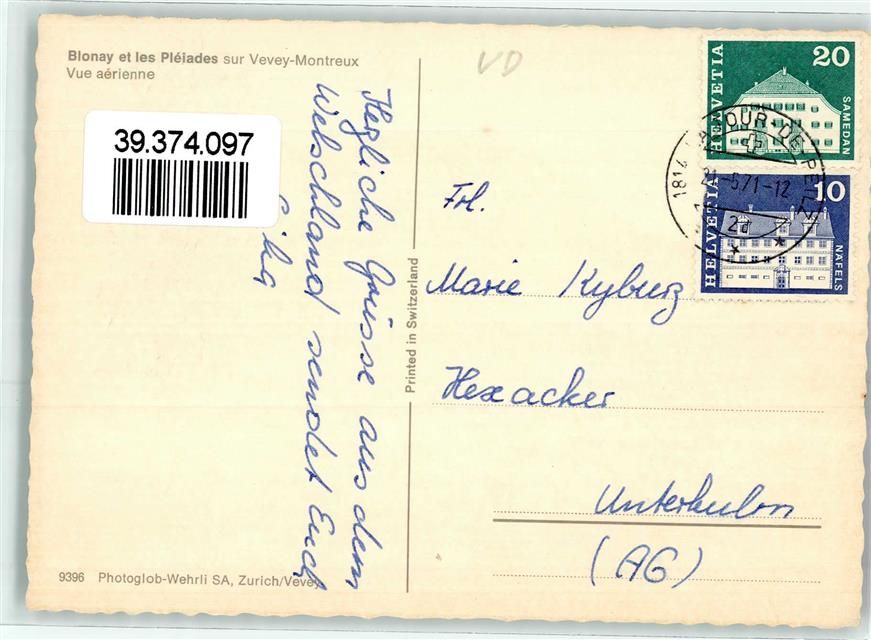 Blonay et les Pléiades sur Vevey-Montreux
Vue aérienne
39.374.097
VD
Herzliche Grüsse aus dem
Welschland sendet Euch
Printed in Switzerland
9396 Photoglob-Wehrli SA, Zurich/Vevey
HELVETIA
20
SAMEDAN
HELVETIA
10
NÄFELS
1814 LA TOUR-DE-PEILZ
-5.71-12
2d
Frl.
Marie Kyburz
Hexacker
Unterkulm
(AG)